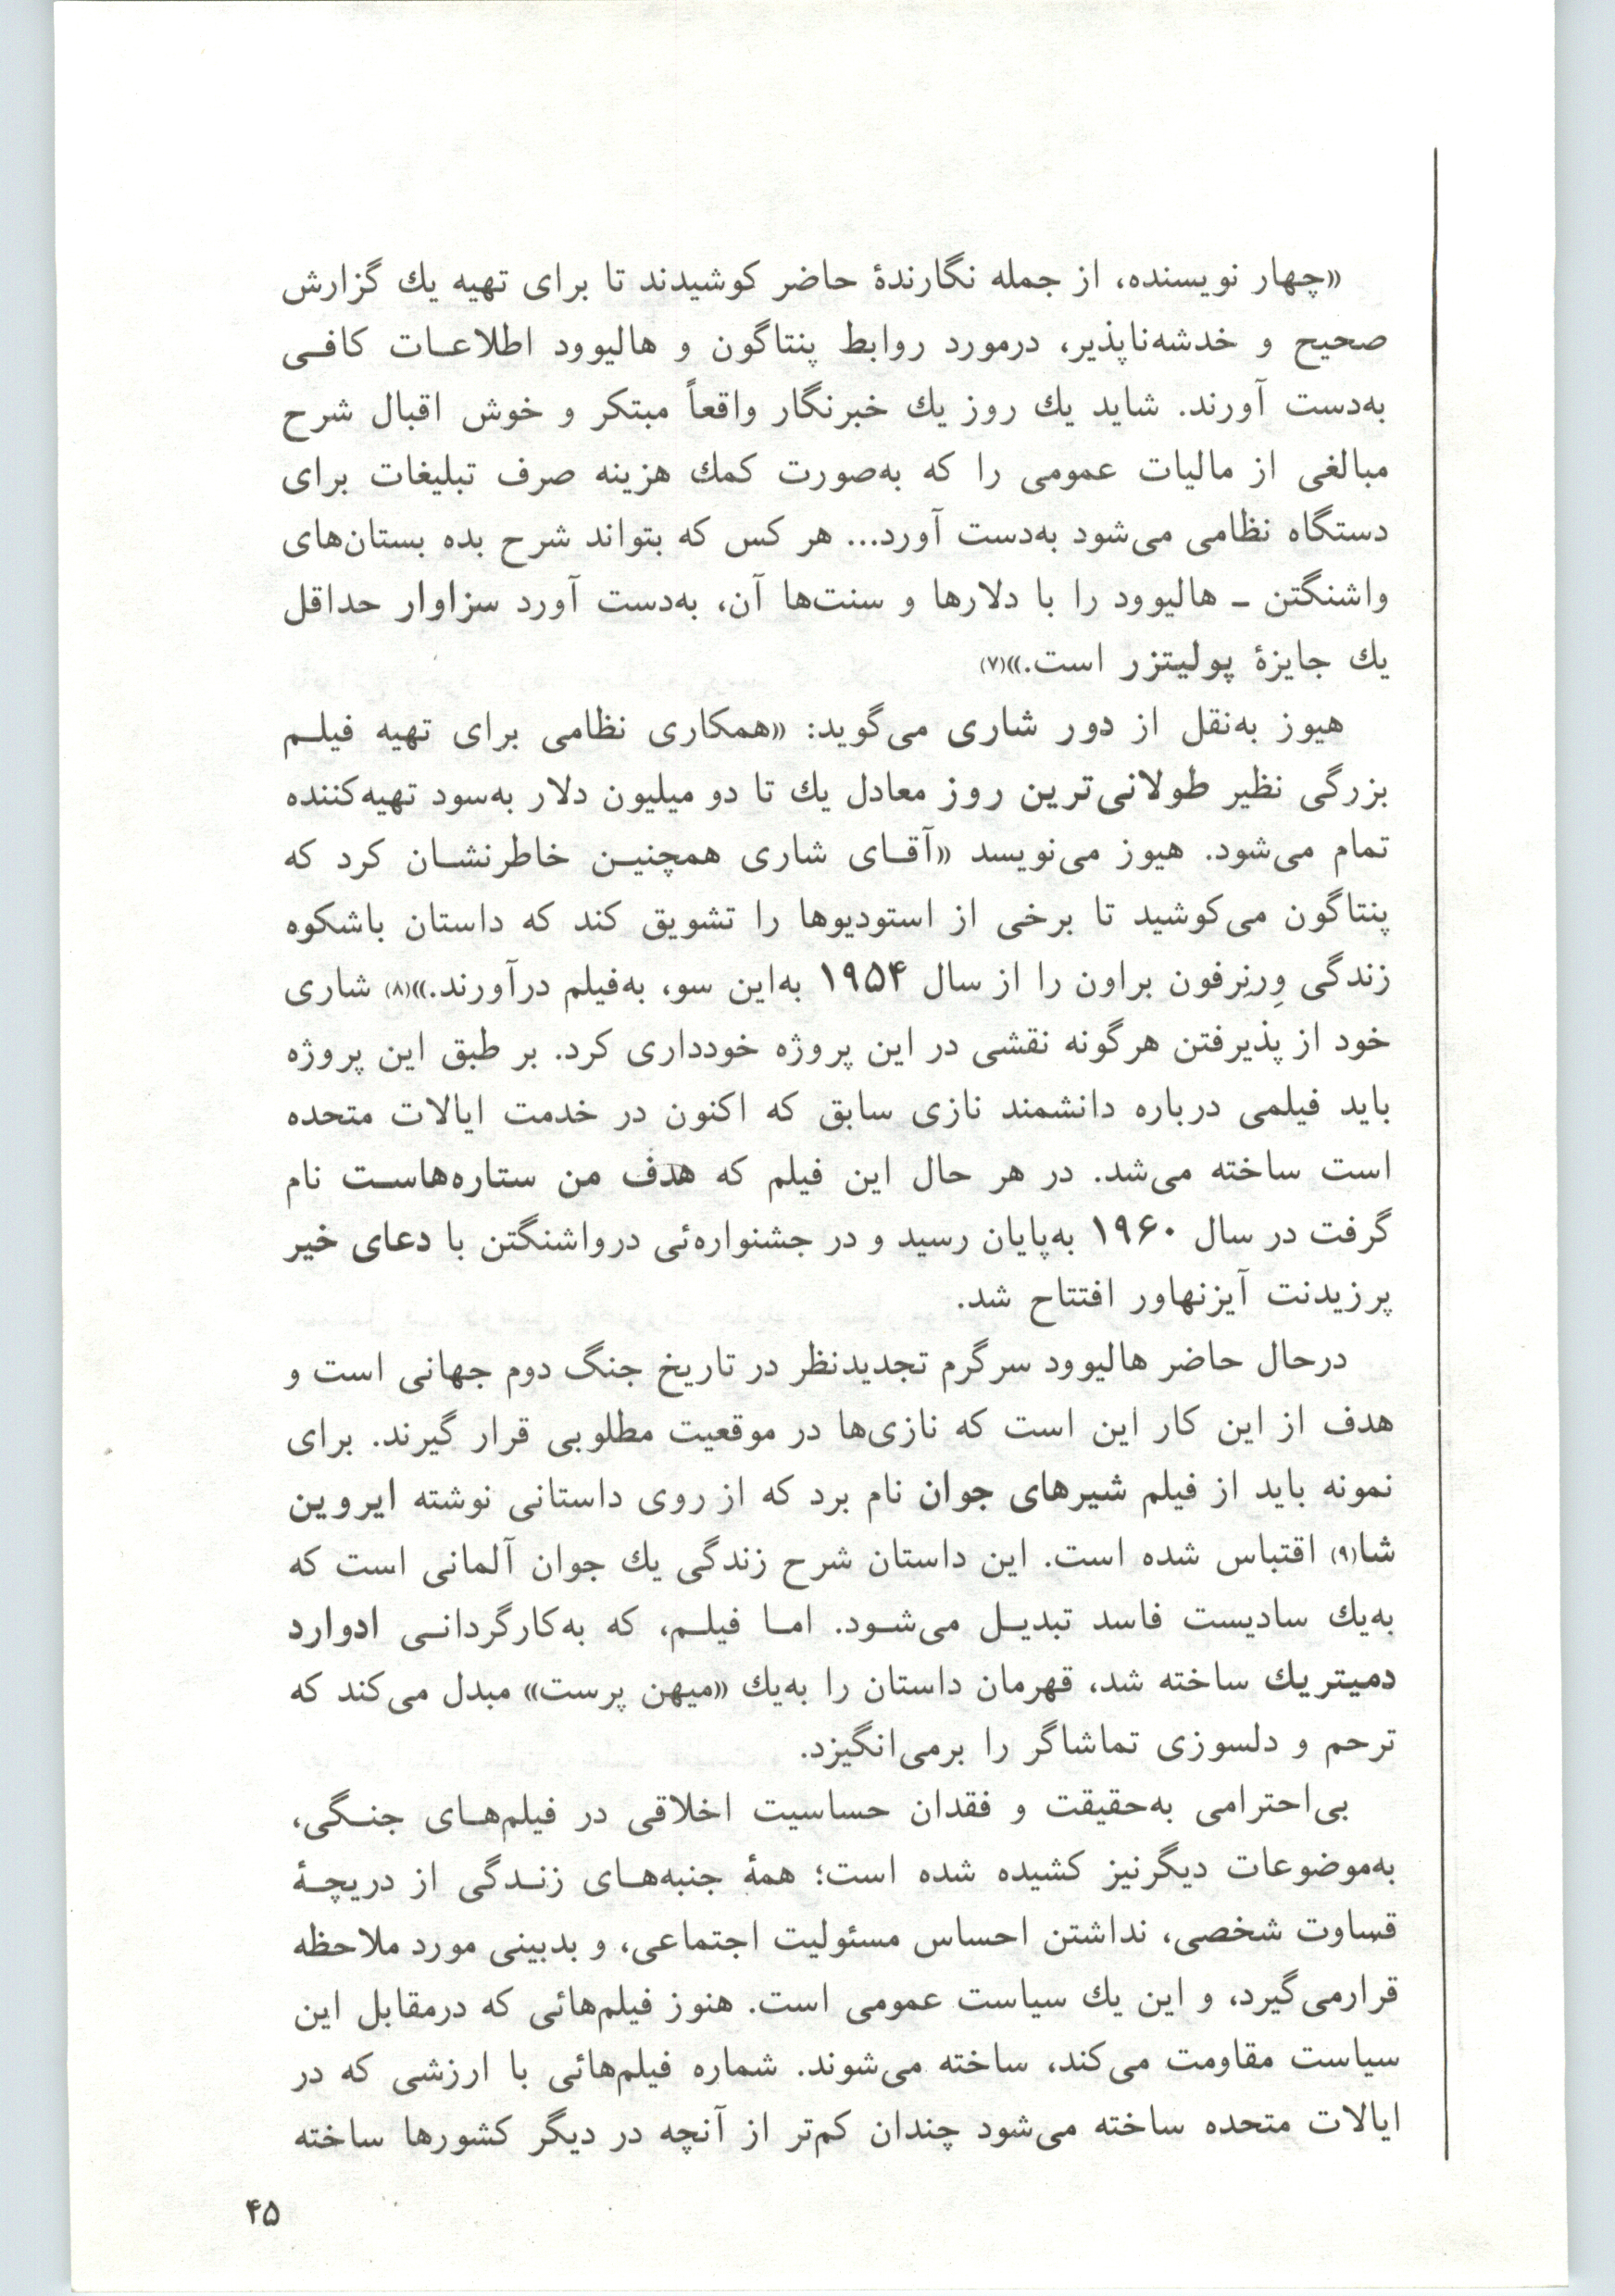 «چهار نویسنده، از جمله نگارندهٔ حاضر کوشیدند تا برای تهیه یك گزارش
صحیح و خدشه‌ناپذیر، درمورد روابط پنتاگون و هالیوود اطلاعـات کافـی
به‌دست آورند. شاید یك روز یك خبرنگار واقعاً مبتکر و خوش اقبال شرح
مبالغی از مالیات عمومی را که به‌صورت کمك هزینه صرف تبلیغات برای
دستگاه نظامی می‌شود به‌دست آورد... هر کس که بتواند شرح بده بستان‌های
واشنگتن ـ هالیوود را با دلارها و سنت‌ها آن، به‌دست آورد سزاوار حداقل
یك جایزهٔ پولیتزر است.»(۷)
هیوز به‌نقل از دور شاری می‌گوید: «همکاری نظامی برای تهیه فیلـم
بزرگی نظیر طولانی‌ترین روز معادل یك تا دو میلیون دلار به‌سود تهیه‌کننده
تمام می‌شود. هیوز می‌نویسد «آقـای شاری همچنیـن خاطرنشـان کرد که
پنتاگون می‌کوشید تا برخی از استودیوها را تشویق کند که داستان باشکوه
زندگی وِرنِرفون براون را از سال ۱۹۵۴ به‌این سو، به‌فیلم درآورند.»(۸) شاری
خود از پذیرفتن هرگونه نقشی در این پروژه خودداری کرد. بر طبق این پروژه
باید فیلمی درباره دانشمند نازی سابق که اکنون در خدمت ایالات متحده
است ساخته می‌شد. در هر حال این فیلم که هدف من ستاره‌هاسـت نام
گرفت در سال ۱۹۶۰ به‌پایان رسید و در جشنواره‌ئی درواشنگتن با دعای خیر
پرزیدنت آیزنهاور افتتاح شد.
درحال حاضر هالیوود سرگرم تجدیدنظر در تاریخ جنگ دوم جهانی است و
هدف از این کار این است که نازی‌ها در موقعیت مطلوبی قرار گیرند. برای
نمونه باید از فیلم شیرهای جوان نام برد که از روی داستانی نوشته ایروین
شا(۹) اقتباس شده است. این داستان شرح زندگی یك جوان آلمانی است که
به‌یك سادیست فاسد تبدیـل می‌شـود. امـا فیلـم، که به‌کارگردانـی ادوارد
دمیتریك ساخته شد، قهرمان داستان را به‌یك «میهن پرست» مبدل می‌کند که
ترحم و دلسوزی تماشاگر را برمی‌انگیزد.
بی‌احترامی به‌حقیقت و فقدان حساسیت اخلاقی در فیلم‌هـای جنـگی،
به‌موضوعات دیگرنیز کشیده شده است؛ همهٔ جنبه‌هـای زنـدگی از دریچـهٔ
قساوت شخصی، نداشتن احساس مسئولیت اجتماعی، و بدبینی مورد ملاحظه
قرارمی‌گیرد، و این یك سیاست عمومی است. هنوز فیلم‌هائی که درمقابل این
سیاست مقاومت می‌کند، ساخته می‌شوند. شماره فیلم‌هائی با ارزشی که در
ایالات متحده ساخته می‌شود چندان کم‌تر از آنچه در دیگر کشورها ساخته
۴۵